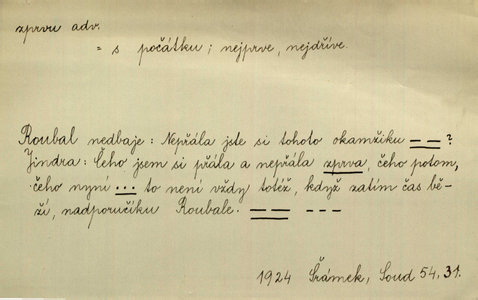 zprvu adv.
= s počátku; nejprve, nejdříve.
Roubal nedbaje: Nepřála jste si tohoto okamžiku — — ?
Jindra: Čeho jsem si přála a nepřála zprva, čeho potom,
čeho nyní ... to není vždy totéž, když zatím čas bě-
ží, nadporučíku Roubale. — — - - -
1924 Šrámek, Soud 54, 31.